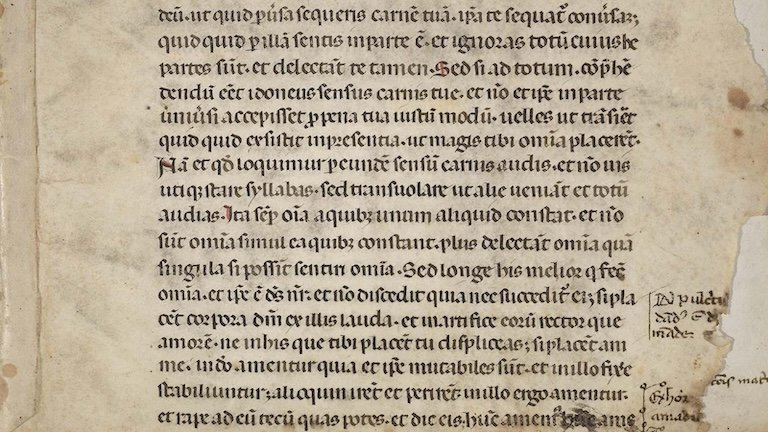 deū. ut quid ꝑūsa sequeris carnē tuā. ip̄a te sequat᷑ conūsaʒ
quid quid ꝑ illā sentis in parte ē. et ignoras totū cuius he
partes sūt. et delectāt te tamen. Sed si ad totum. cōp̄hē
dendū eēt idoneus sensus carnis tue. et nō et ip̄e in parte
uniūsi accepisset ꝓ pena tua iustū modū. uelles ut trāsiēt
quid quid existit in presentia. ut magis tibi omīa placerēt.
Nā et qd̄ loquimur ꝑ eundē sensū carnis audis. et nō uis
utiqꝫ stare syllabas. sed transuolare ut alie ueniāt et totū
audias. Ita semꝑ oīa a quibꝫ unum aliquid constat. et nō
sūt omīa simul ea quibꝫ constant. plus delectāt omīa quā
singula si possīt sentiri omīa. Sed longe his melior q̄ fec̄
omīa. et ip̄e ē d̄s nr̄. et nō discedit quia nec succedit᷑ ei; si pla
cēt corpora dm̄ ex illis lauda. et in artifice eorū rector que
amorē. ne in his que tibi placēt tu displiceas; si placēt am
me. in dō amentur quia et ip̄e mutabiles sūt. et in illo fixe
stabiliuntur; alioquin irēt et perirēt. in illo ergo amentur.
et rape ad eū tecū quas potes. et dic eis. hūc amem᷑ hūc ame